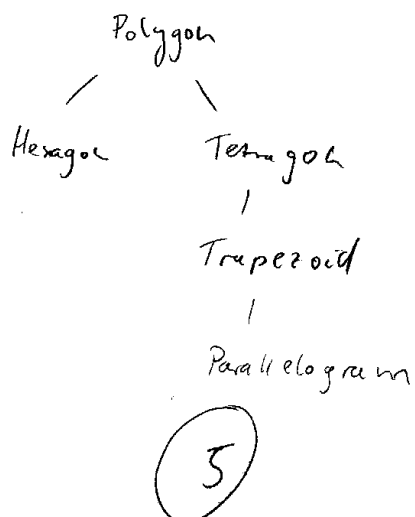 Polygon
Hexagon Tetragon
Trapezoid
Parallelogram
5